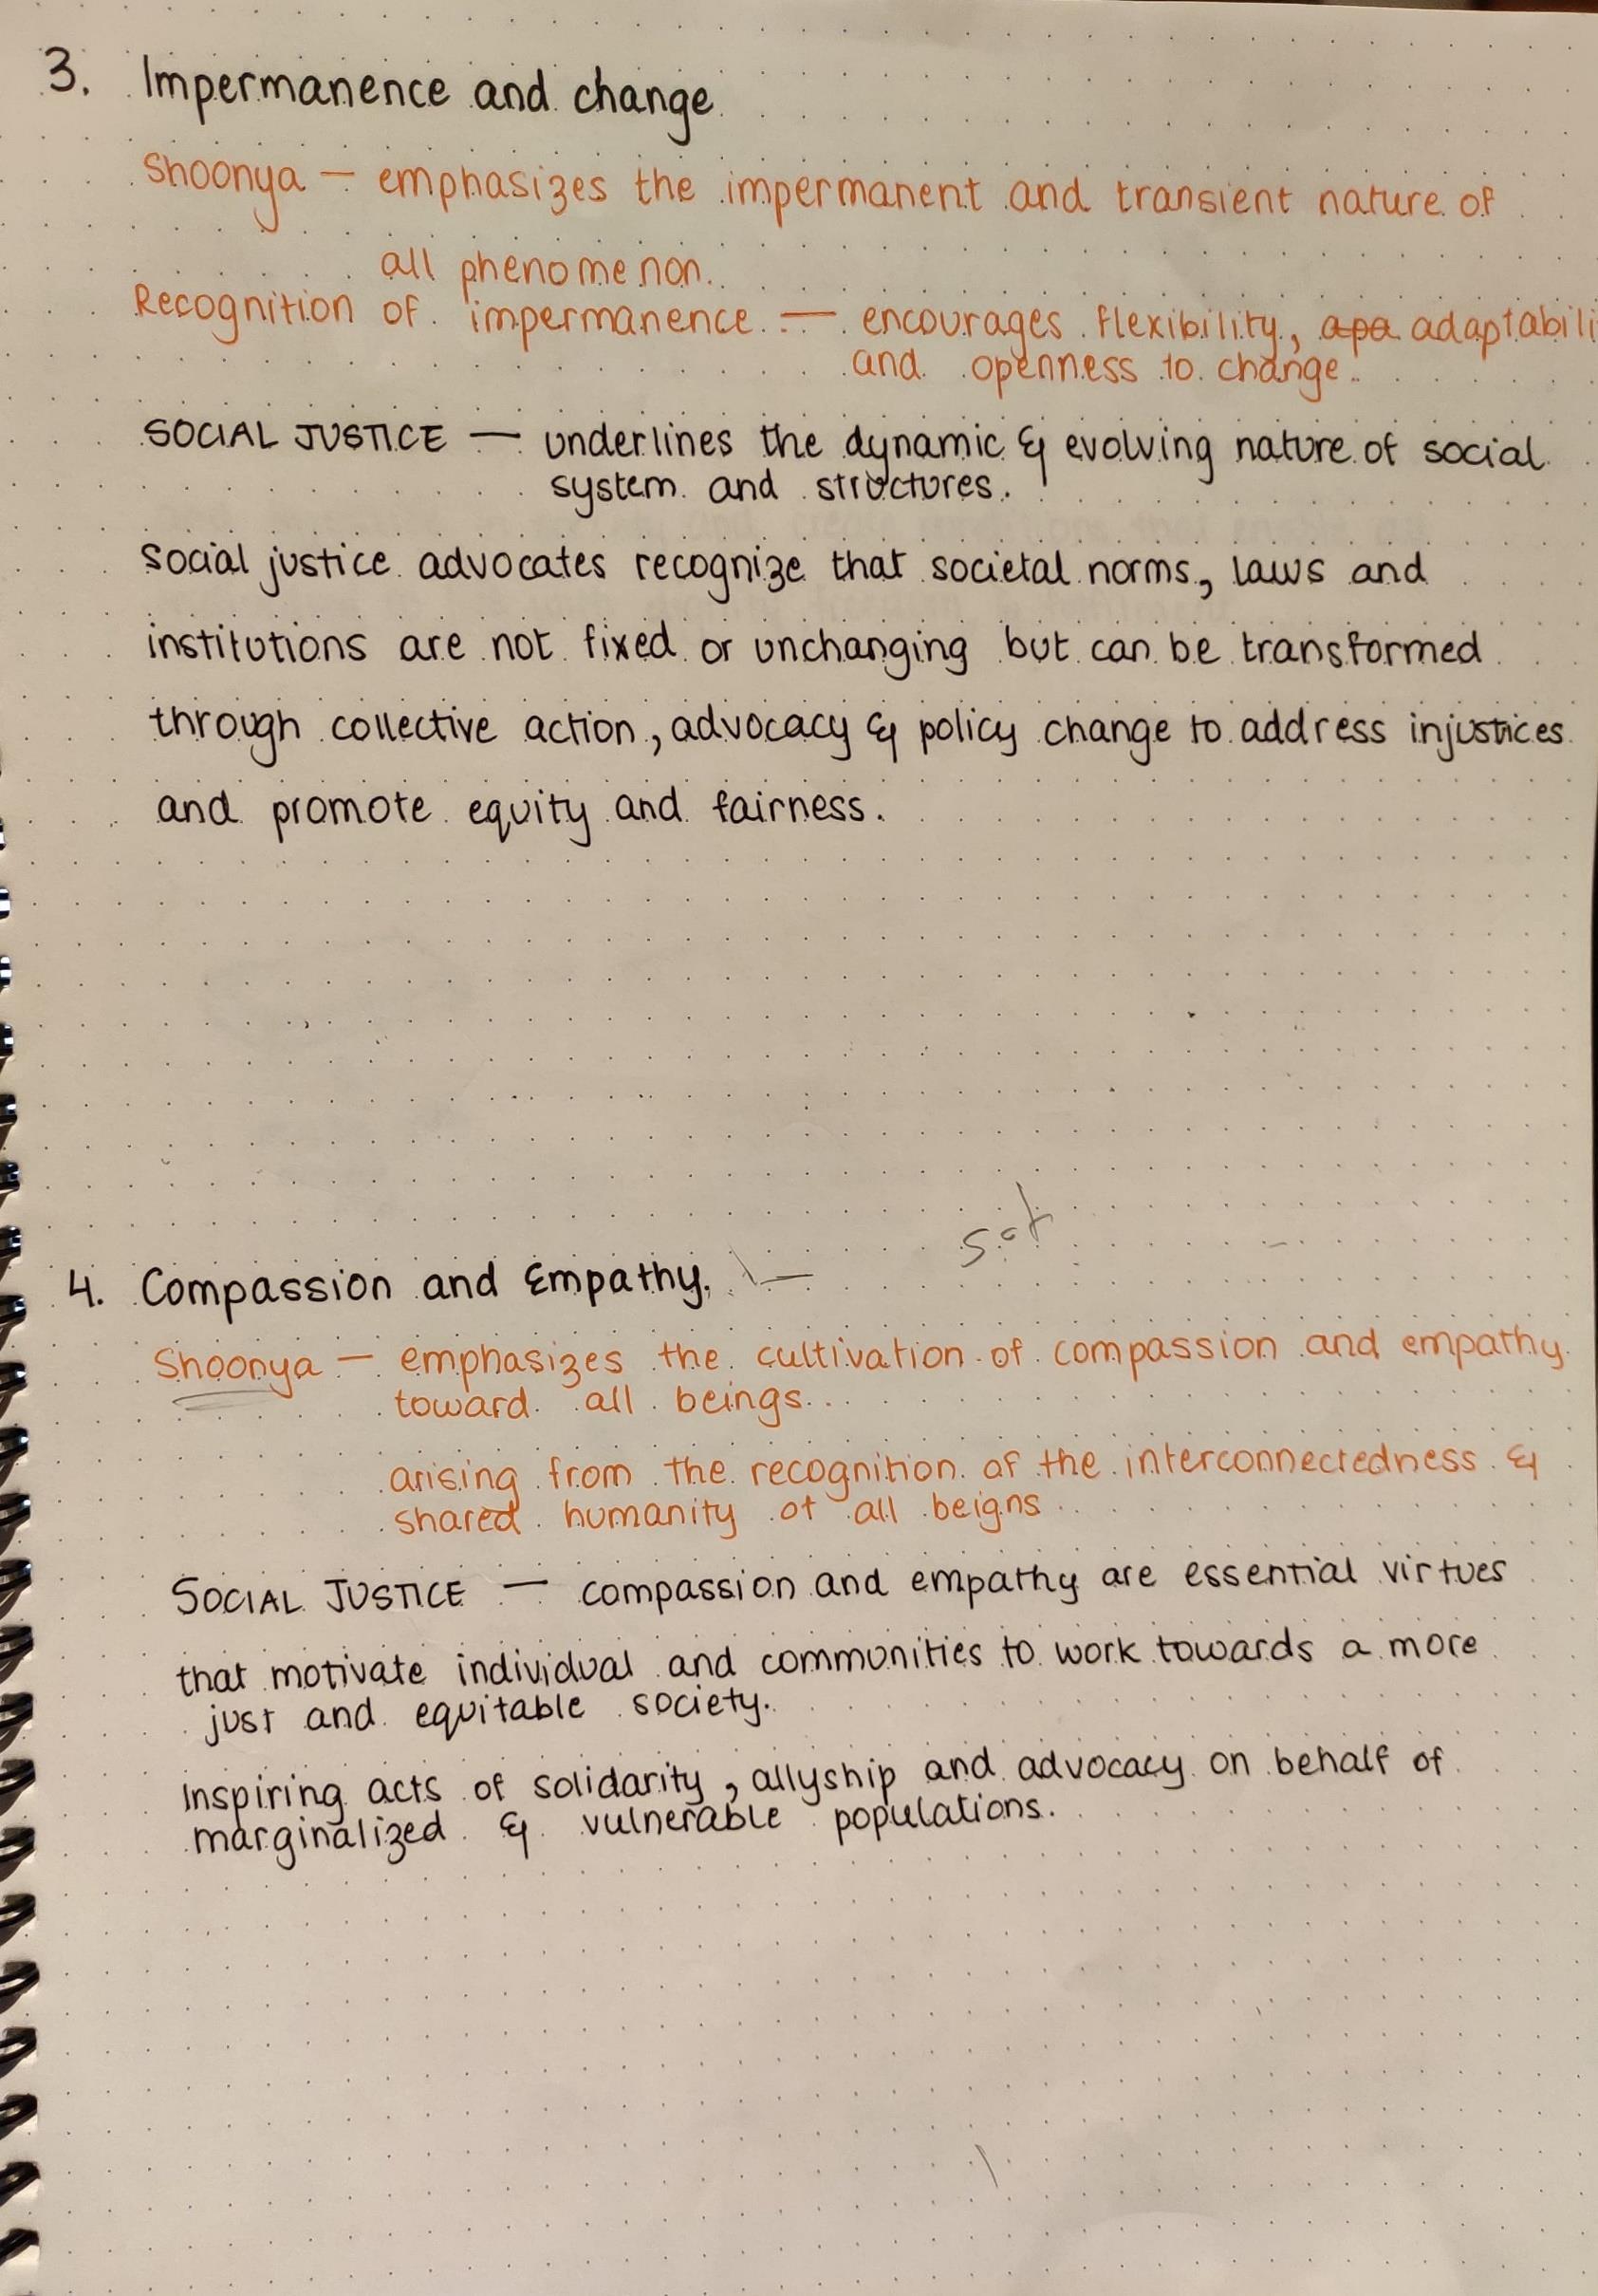 3. Impermanence and change
Shoonya — emphasizes the impermanent and transient nature of
all phenomenon.
Recognition of impermanence — encourages flexibility, apa adaptabili
and openness to change.
SOCIAL JUSTICE — underlines the dynamic & evolving nature of social
system and structures.
social justice advocates recognize that societal norms, laws and
institutions are not fixed or unchanging but can be transformed
through collective action, advocacy & policy change to address injustices
and promote equity and fairness.
4. Compassion and Empathy. —
Shoonya — emphasizes the cultivation of compassion and empathy
toward all beings.
arising from the recognition of the interconnectedness &
shared humanity of all beigns
SOCIAL JUSTICE — compassion and empathy are essential virtues
that motivate individual and communities to work towards a more
just and equitable society.
Inspiring acts of solidarity, allyship and advocacy on behalf of
marginalized & vulnerable populations.